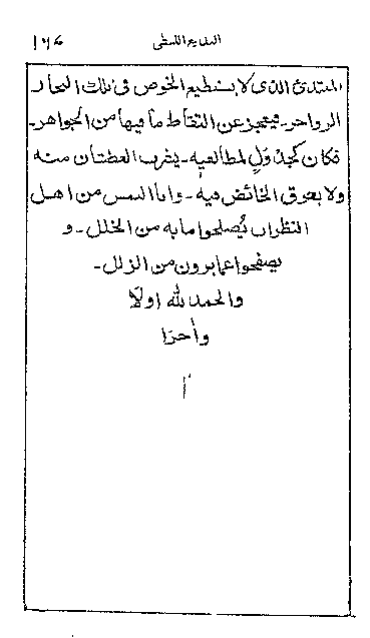 ١٩٤
المبتدئ الذى لا يستطيع الخوض فى تلك البحار
الزواخر - فيعجز عن التقاط ما فيها من الجواهر -
فكان كجدول لمطالعيه - يشرب العطشان منه
ولا يغرق الخائض فيه - وانا التمس من اهل
النظر ان يصلحوا ما به من الخلل - و
يصفحوا عما يرون من الزلل -
والحمد لله اولًا
وأخرًا